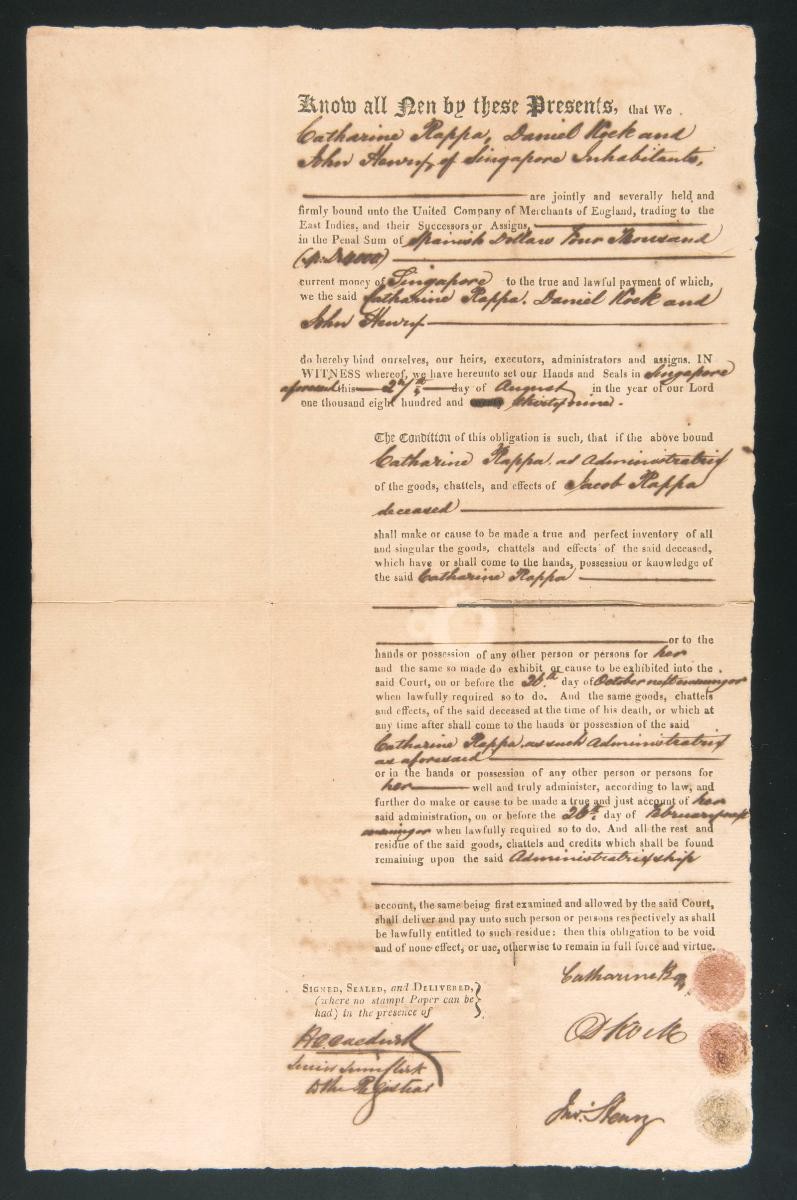 Know all Men by these Presents, that We
Catharine Rappa, Daniel Kock and
John Henry, of Singapore Inhabitants,
are jointly and severally held and
firmly bound unto the United Company of Merchants of England, trading to the
East Indies, and their Successors or Assigns,
in the Penal Sum of Spanish Dollars Four Thousand
(Sp. Drs 4000)
current money of Singapore to the true and lawful payment of which,
we the said Catharine Rappa. Daniel Kock and
John Henry
do hereby bind ourselves, our heirs, executors, administrators and assigns. IN
WITNESS whereof, we have hereunto set our Hands and Seals in Singapore
aforesaid this 27th day of August in the year of our Lord
one thousand eight hundred and thirty nine.
The Condition of this obligation is such, that if the above bound
Catharine Rappa as Administratrix
of the goods, chattels, and effects of Jacob Rappa
deceased
shall make or cause to be made a true and perfect inventory of all
and singular the goods, chattels and effects of the said deceased,
which have or shall come to the hands, possession or knowledge of
the said Catharine Rappa
or to the
hands or possession of any other person or persons for her
and the same so made do exhibit or cause to be exhibited into the
said Court, on or before the 26th day of October next ensuing or
when lawfully required so to do. And the same goods, chattels
and effects, of the said deceased at the time of his death, or which at
any time after shall come to the hands or possession of the said
Catharine Rappa as such Administratrix
as aforesaid
or in the hands or possession of any other person or persons for
her well and truly administer, according to law, and
further do make or cause to be made a true and just account of her
said administration, on or before the 26th. day of February next
ensuing or when lawfully required so to do. And all the rest and
residue of the said goods, chattels and credits which shall be found
remaining upon the said Administratrixship
account, the same being first examined and allowed by the said Court,
shall deliver and pay unto such person or persons respectively as shall
be lawfully entitled to such residue: then this obligation to be void
and of none effect, or use, otherwise to remain in full force and virtue.
SIGNED, SEALED, and DELIVERED,
(where no stampt Paper can be
had) in the presence of
Catharine
DKock
Clerk
to the Registrar
Jno. Henry